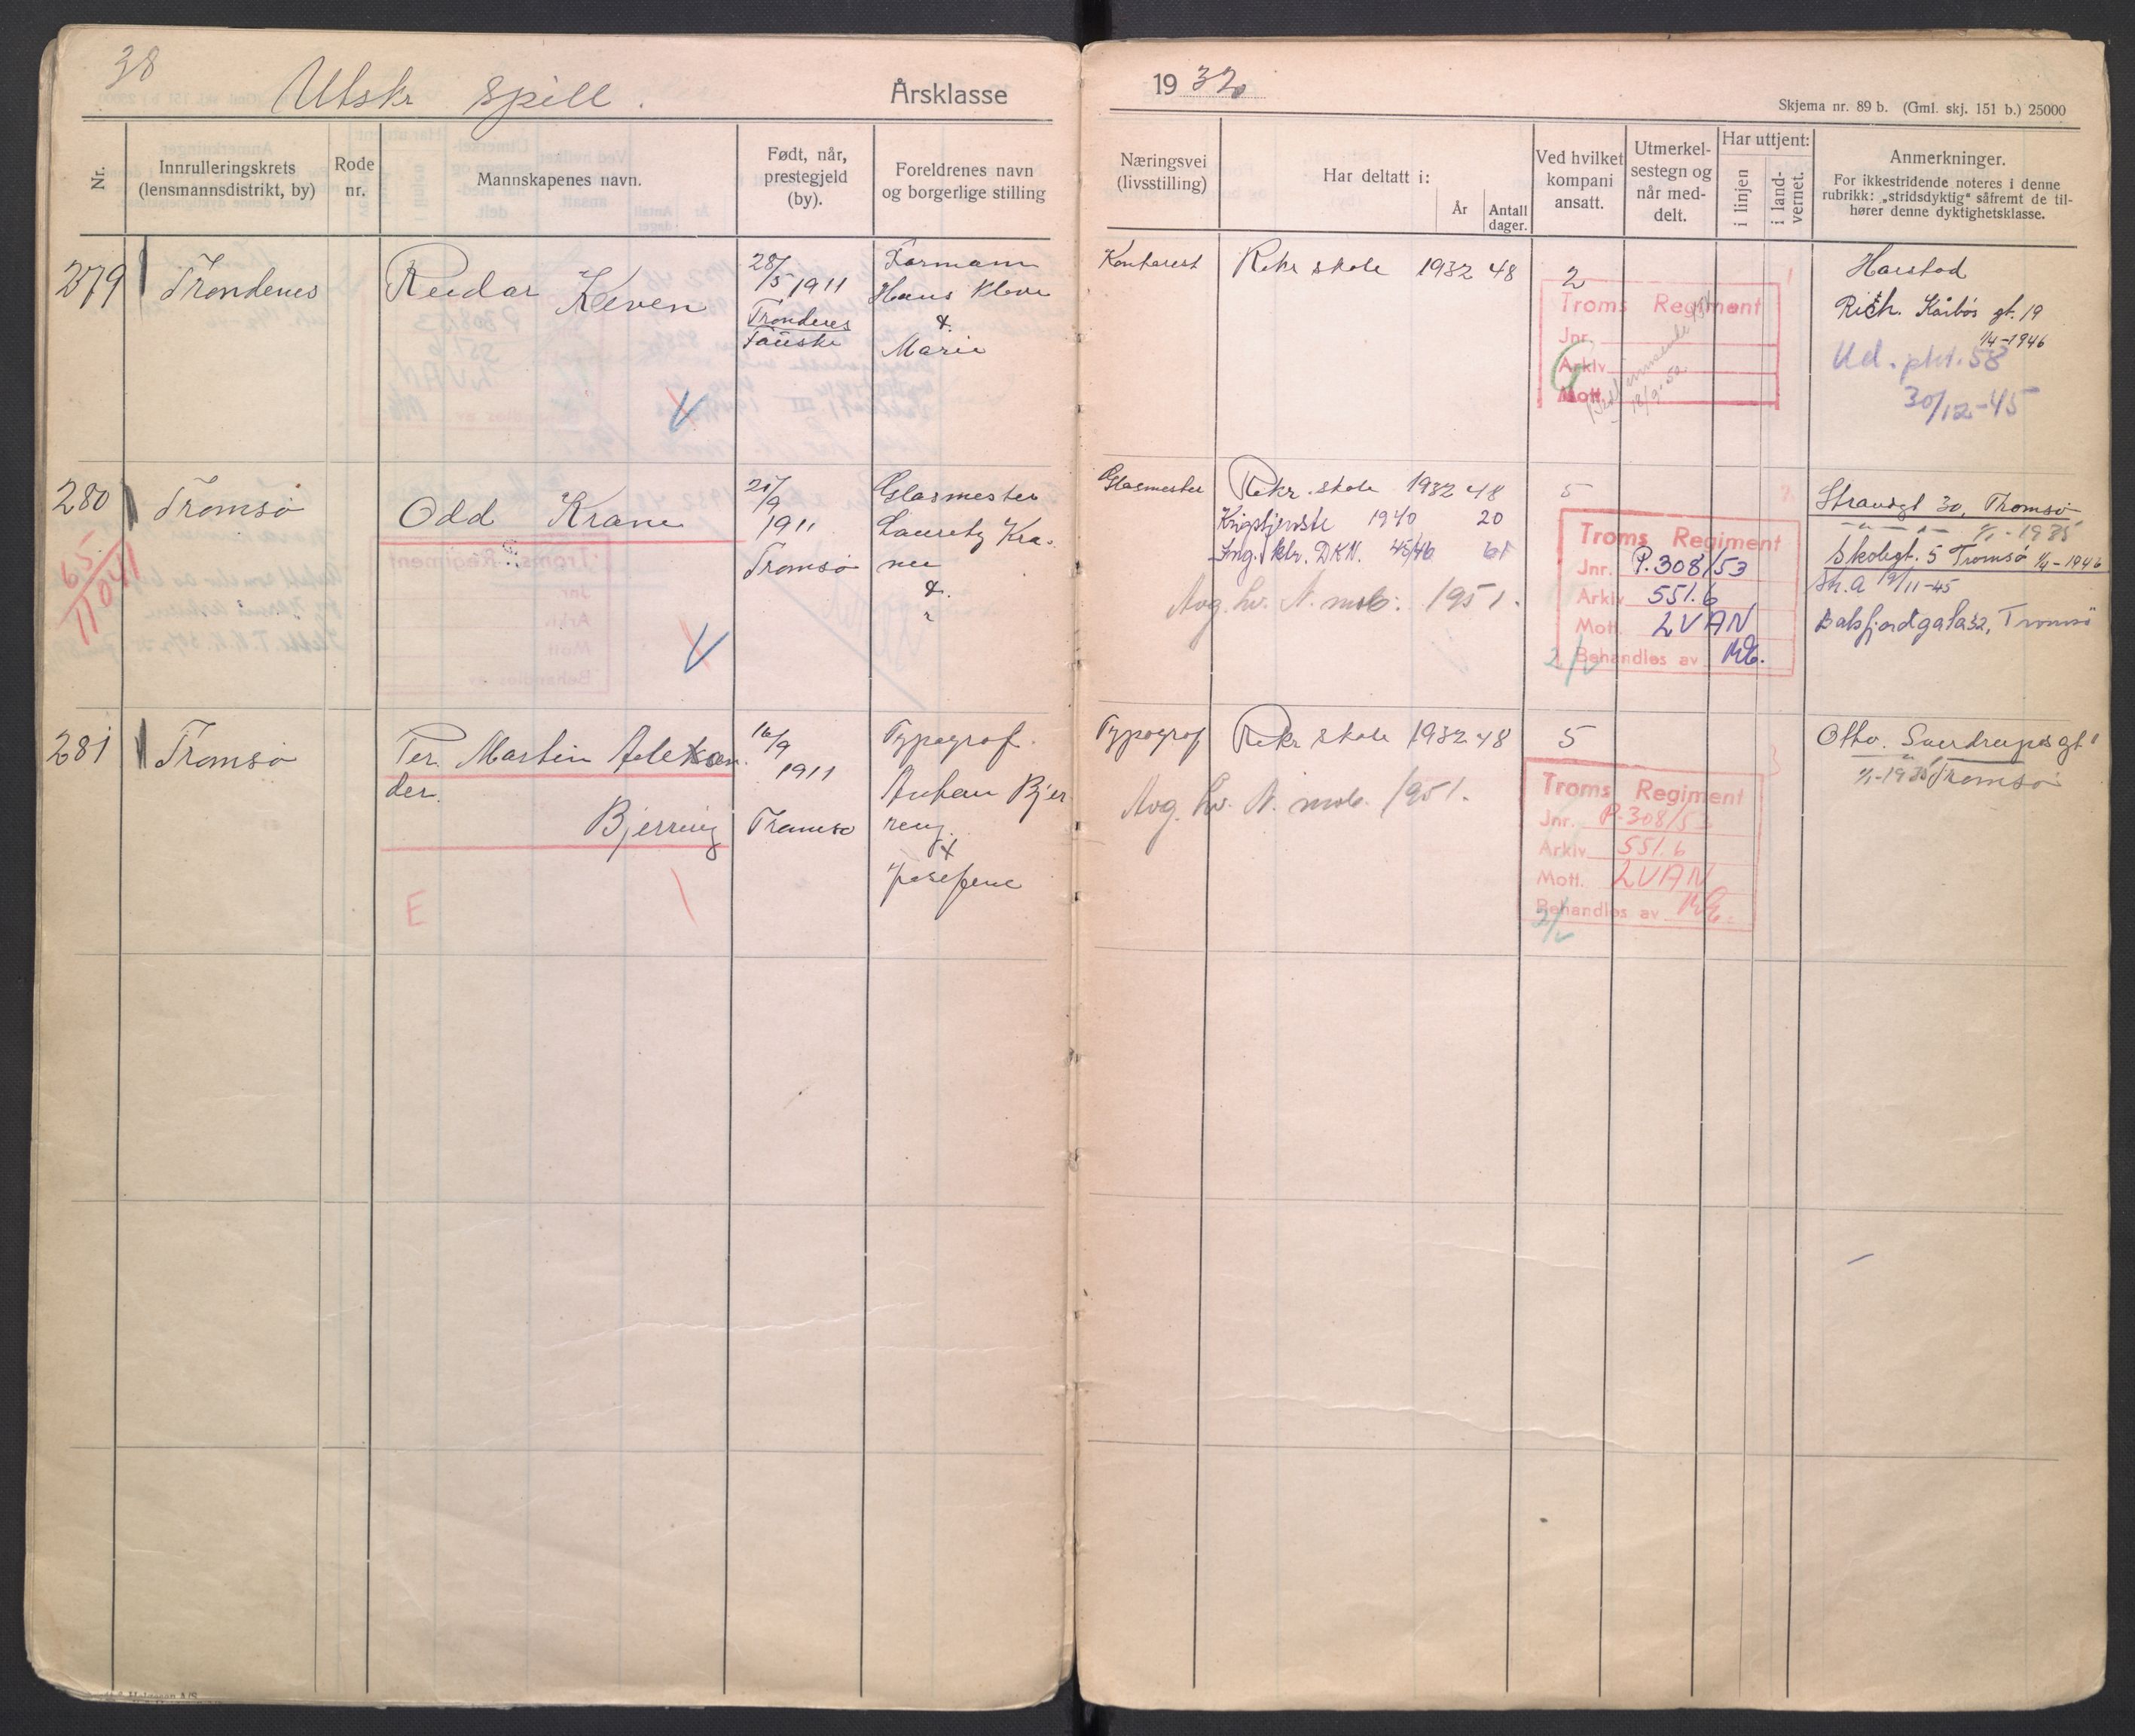 38
Utskr spill.
Årsklasse
Nr.
Innrulleringskrets
(lensmannsdistrikt, by)
Rode
nr.
Mannskapenes navn.
Født, når,
prestegjeld
(by).
Foreldrenes navn
og borgerlige stilling
279
Trondenes
Reidar Kleven
28/5 1911
Trondenes
Fauske
Formann
Hans Kleve
&
Marie
280
65
11041
Tromsø
Odd Krane
21/9
1911
Tromsø
Glasmester
Lauritz Kra-
ne
&
281
Tromsø
Per. Martin Aleksan
der.
Bjerring
16/9
1911
Tromsø
Typograf.
Anton Bjer
ring.
&
Josefine
E
19 32
Skjema nr. 89 b. (Gml. skj. 151 b.) 25000
Næringsvei
(livsstilling)
Har deltatt i:
År
Antall
dager.
Ved hvilket
kompani
ansatt.
Utmerkel-
sestegn og
når med-
delt.
Har uttjent:
i linjen
i land-
vernet.
Anmerkninger.
For ikkestridende noteres i denne
rubrikk: „stridsdyktig“ såfremt de til-
hører denne dyktighetsklasse.
Kontorist
Rekr skole 1932 48
2
Troms Regiment
Jnr.
Arkiv
Mott.
18/9-52
Harstad
Rich. Kårbøs gt. 19
1/4-1946
Ud. pkt. 58
30/12-45
Glasmester
Rekr. skole 1932 48
Krigstjeneste 1940 20
Ing. klv. DKN. 45/46 61
Avg. Lv. N. mob: 1951.
5
Troms Regiment
Jnr. P.308/53
Arkiv 551.6
Mott. LVAN
Behandles av
2/V
Strandgt 30, Tromsø
1/1-1935
Skolegt. 5 Tromsø 1/4-1946
Sh.a 19/11-45
Balsfjordgata 32, Tromsø
Typograf
Rekr skole 1932 48
Avg. Lv. N. mob. 1951.
5
Troms Regiment
Jnr. P.308/53
Arkiv 551.6
Mott. LVAN
Behandles av
2/V
Otto. Sverdrups gt 1
1/1-1935 Tromsø